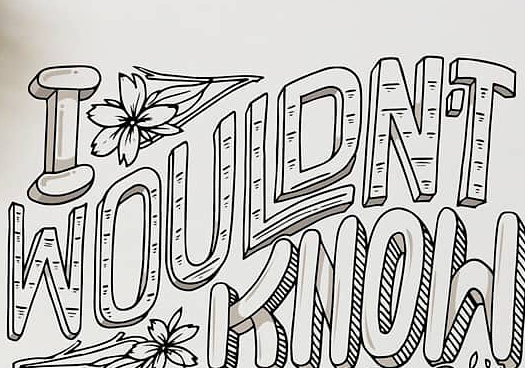 I
WOULDN'T
KNOW